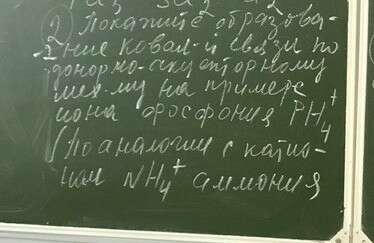 2) Покажите образова-
ние ковал-й связи по
донорно-акцепторному
мех-му на примере
иона фосфония PH₄⁺
По аналогии с катио-
ном NH₄⁺ аммония